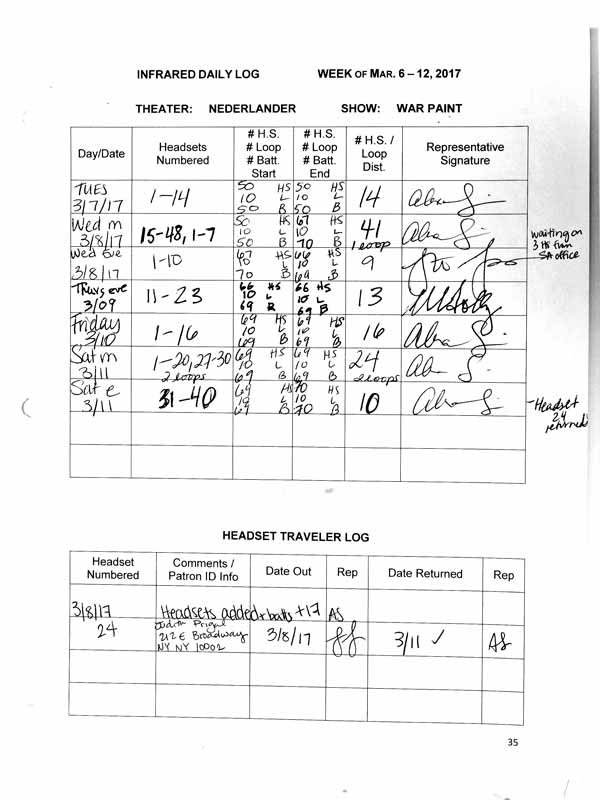 INFRARED DAILY LOG WEEK OF MAR. 6 – 12, 2017
THEATER: NEDERLANDER SHOW: WAR PAINT
Day/Date
Headsets
Numbered
# H.S.
# Loop
# Batt.
Start
# H.S.
# Loop
# Batt.
End
# H.S. /
Loop
Dist.
Representative
Signature
TUES
3/7/17
1-14
50 HS
10 L
50 B
50 HS
10 L
50 B
14
Wed m
3/8/17
15-48, 1-7
50 HS
10 L
50 B
67 HS
10 L
70 B
41
1 loop
waiting on
3 HS from
SA office
Wed Eve
3/8/17
1-10
67 HS
10 L
70 B
66 HS
10 L
69 B
9
Thurs eve
3/09
11-23
66 HS
10 L
69 B
66 HS
10 L
69 B
13
Friday
3/10
1-16
69 HS
10 L
69 B
69 HS
10 L
69 B
16
Sat m
3/11
1-20, 27-30
2 loops
69 HS
10 L
69 B
69 HS
10 L
69 B
24
2 loops
Sat e
3/11
31-40
69 HS
10 L
69 B
70 HS
10 L
70 B
10
-Headset
24
returned
HEADSET TRAVELER LOG
Headset
Numbered
Comments /
Patron ID Info
Date Out
Rep
Date Returned
Rep
3/8/17 Headsets added + batts +17 AS
24
Judith
212 E Broadway
NY NY 10002
3/8/17
3/11 ✓
AS
35